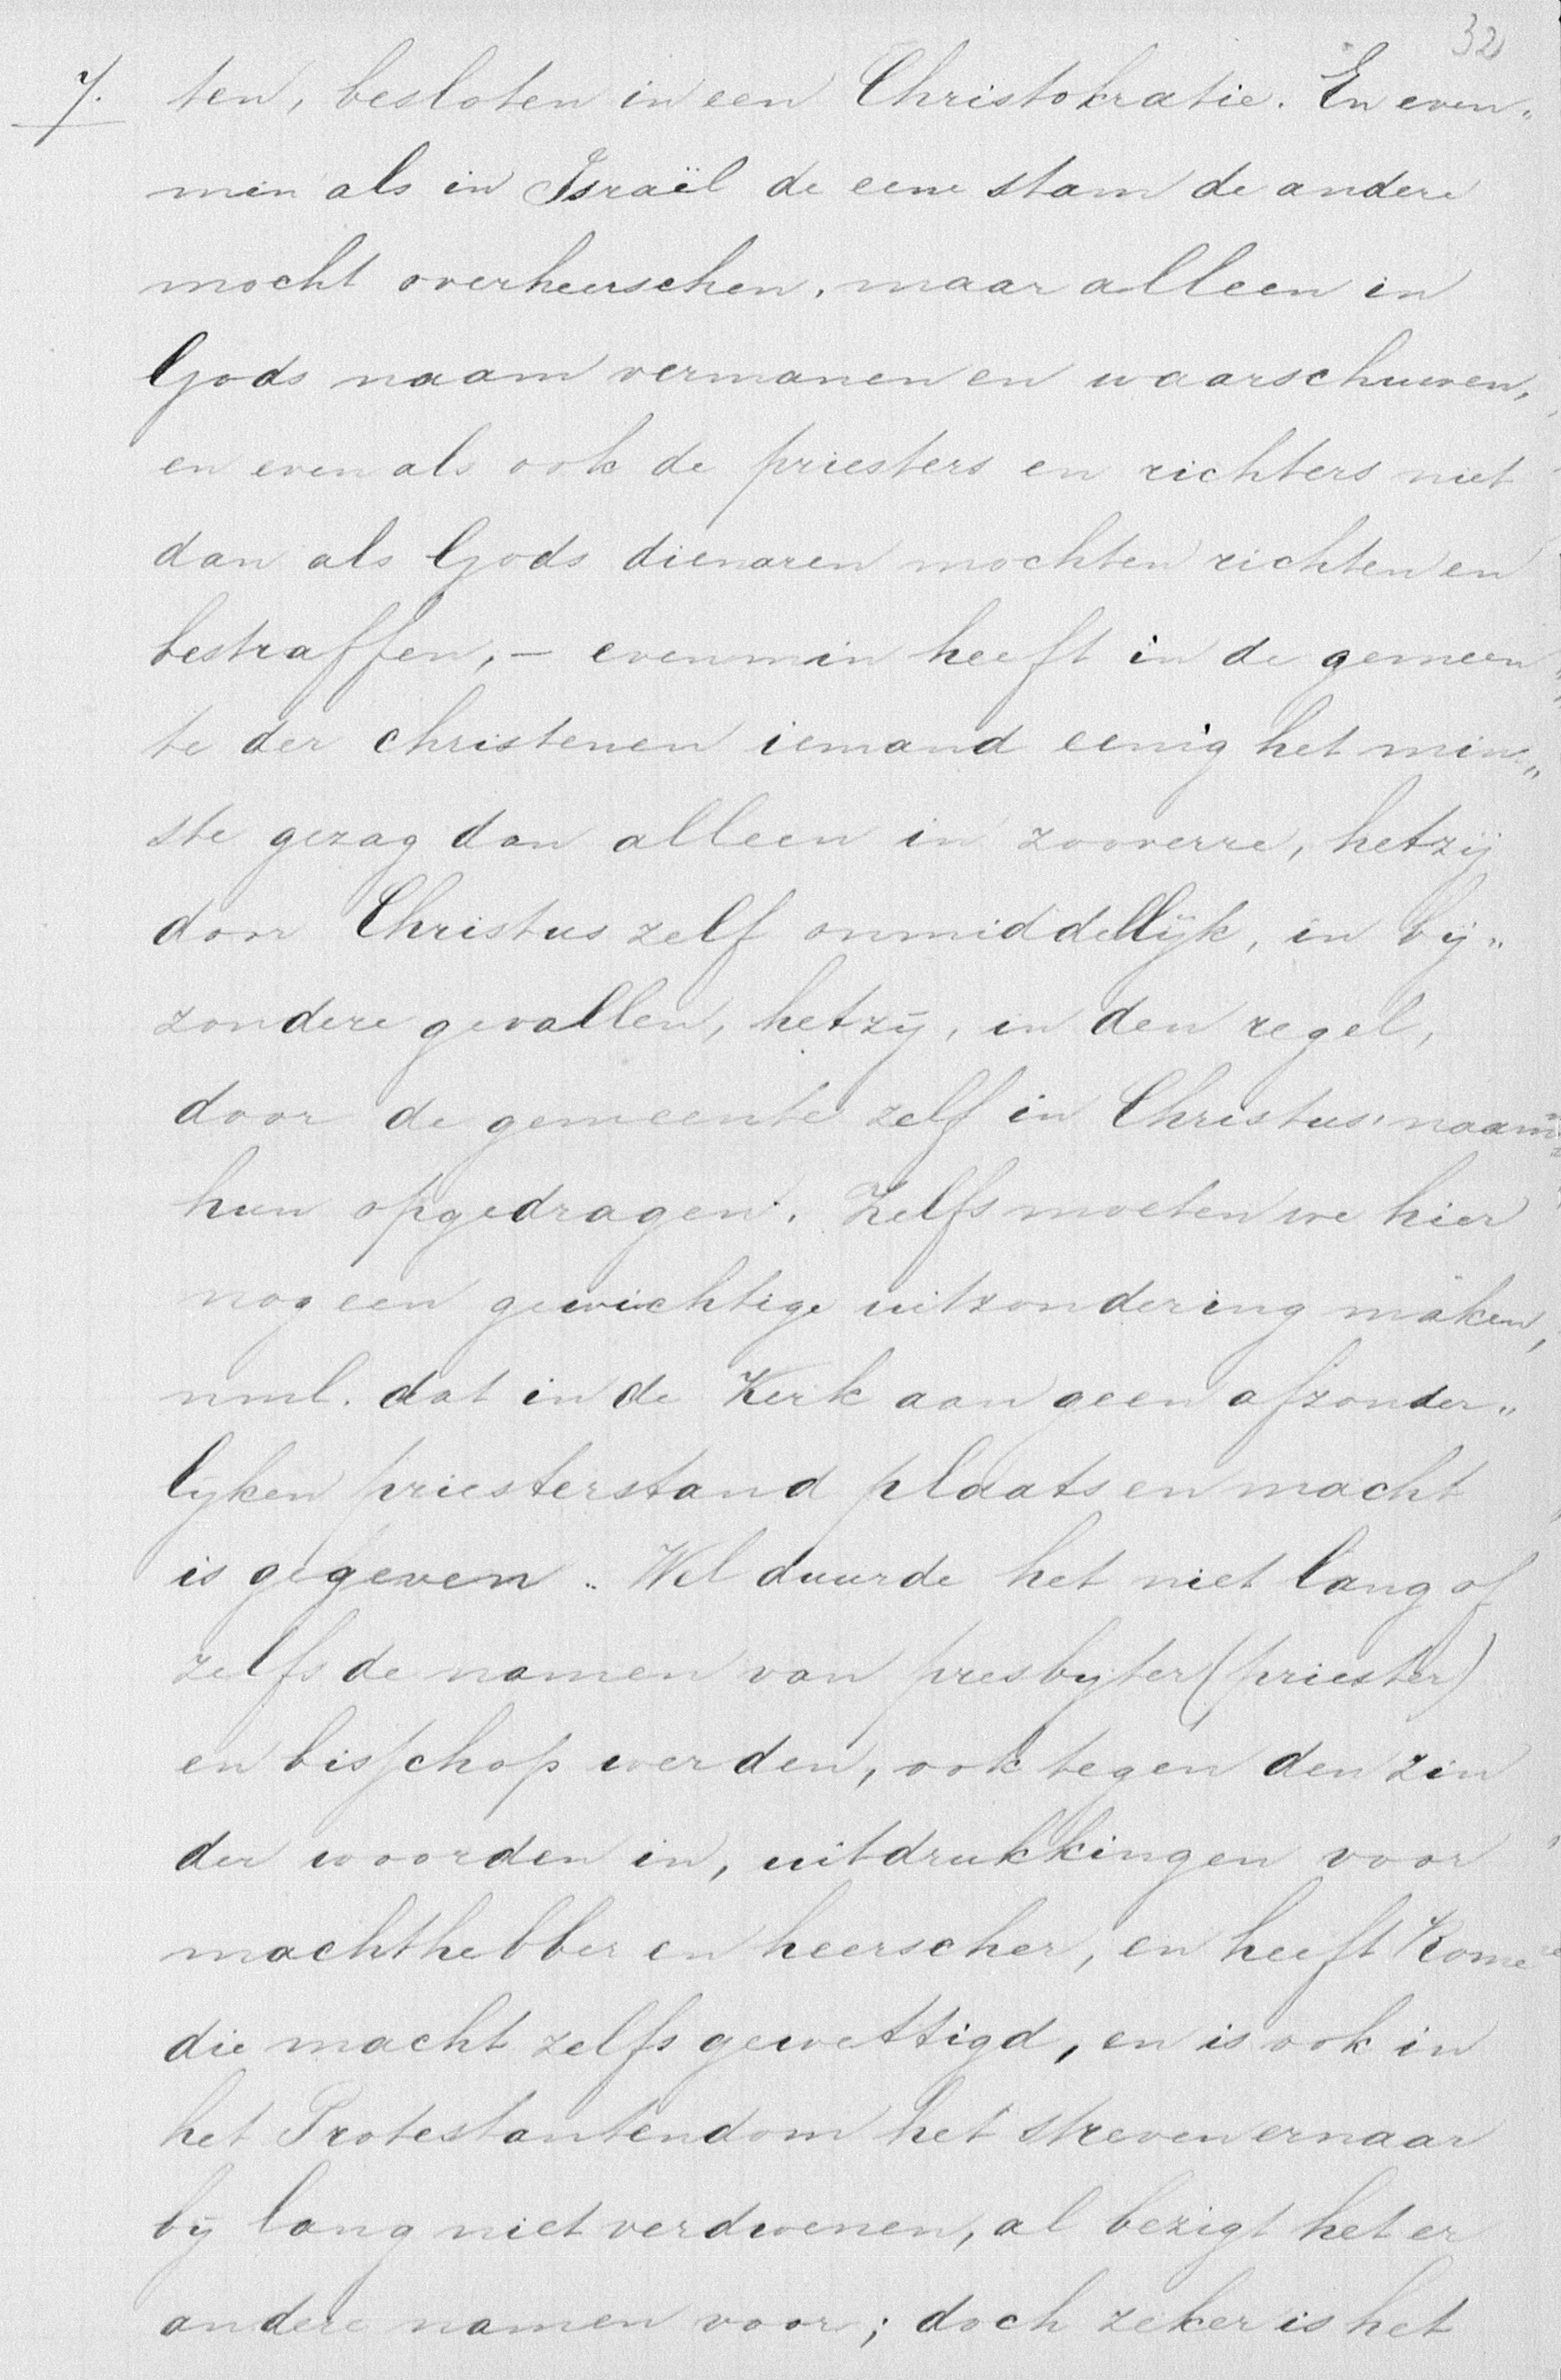 32
7. ten, besloten in een Christokratie. En even„
min als in Israël de eene stam de andere
mocht overheerschen, maar alleen in
Gods naam vermanen en waarschuwen,
en even als ook de priesters en richters niet
dan als Gods dienaren mochten richten en
bestraffen, — evenmin heeft in de gemeen
te der christenen iemand eenig het min„
ste gezag dan alleen in zooverre, hetzij
door Christus zelf onmiddellijk, in bij„
zondere gevallen, hetzij, in den regel,
door de gemeente zelf in Christus' naam
hun opgedragen. Zelfs moeten we hier
nog een gewichtige uitzondering maken,
nml. dat in de Kerk aan geen afzonder„
lijken priesterstand plaats en macht
is gegeven. Wel duurde het niet lang of
zelfs de namen van presbyter (priester)
en bisschop werden, ook tegen den zin
der woorden in, uitdrukkingen voor
machthebber en heerscher, en heeft Rome
die macht zelfs gewettigd, en is ook in
het Protestantendom het streven ernaar
bij lang niet verdwenen, al bezigt het er
andere namen voor; doch zeker is het